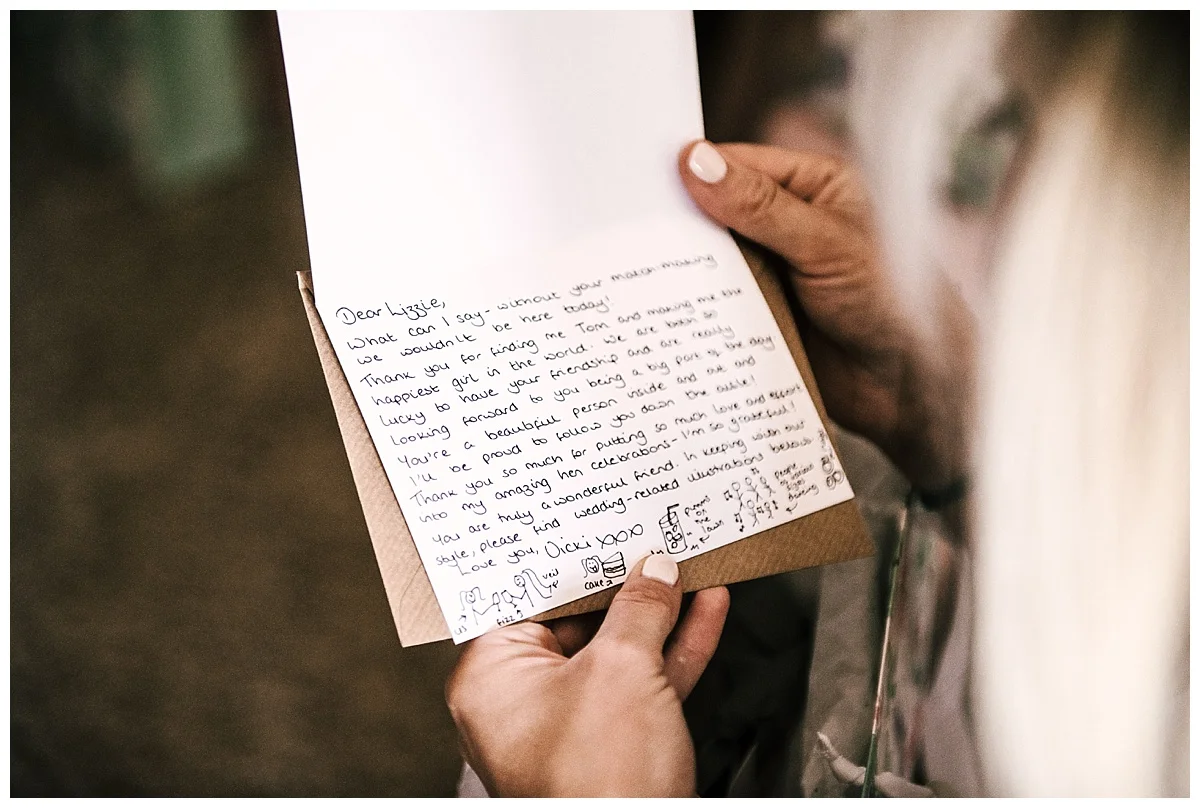 Dear Lizzie,
What can I say - without your match-making
we wouldn't be here today!
Thank you for finding me Tom and making me the
happiest girl in the world. We are both so
lucky to have your friendship and are really
looking forward to you being a big part of the day
You're a beautiful person inside and out and
I'll be proud to follow you down the aisle!
Thank you so much for putting so much love and effort
into my amazing hen celebrations - I'm so grateful!
You are truly a wonderful friend. In keeping with our
style, please find wedding-related illustrations below
Love you, Vicki xxxx
us
fizz
veil
cake
pimms
on
the
lawn
people
of various
ages
dancing